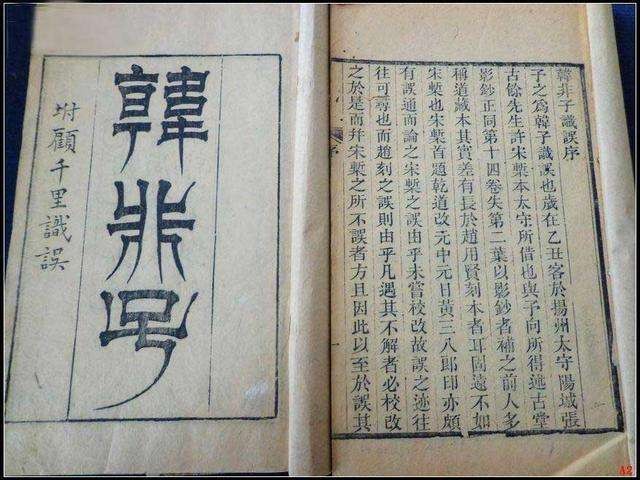 韓非子
坿顧千里識誤
韓非子識誤序
予之爲韓子識誤也歲在乙丑客於揚州太守陽城張
古餘先生許宋槧本太守所借也與予向所得述古堂
影鈔正同第十四卷失第二葉以影鈔者補之前人多
稱道藏本其實差有長於趙用賢刻本者耳固遠不如
宋槧也宋槧首題乾道改元中元日黃三八郎印亦頗
有誤通而論之宋槧之誤由乎未嘗校改故誤之迹往
往可尋也而趙刻之誤則由乎凡遇其不解者必校改
之於是而并宋槧之所不誤者方且因此以至於誤其
序
一
A2